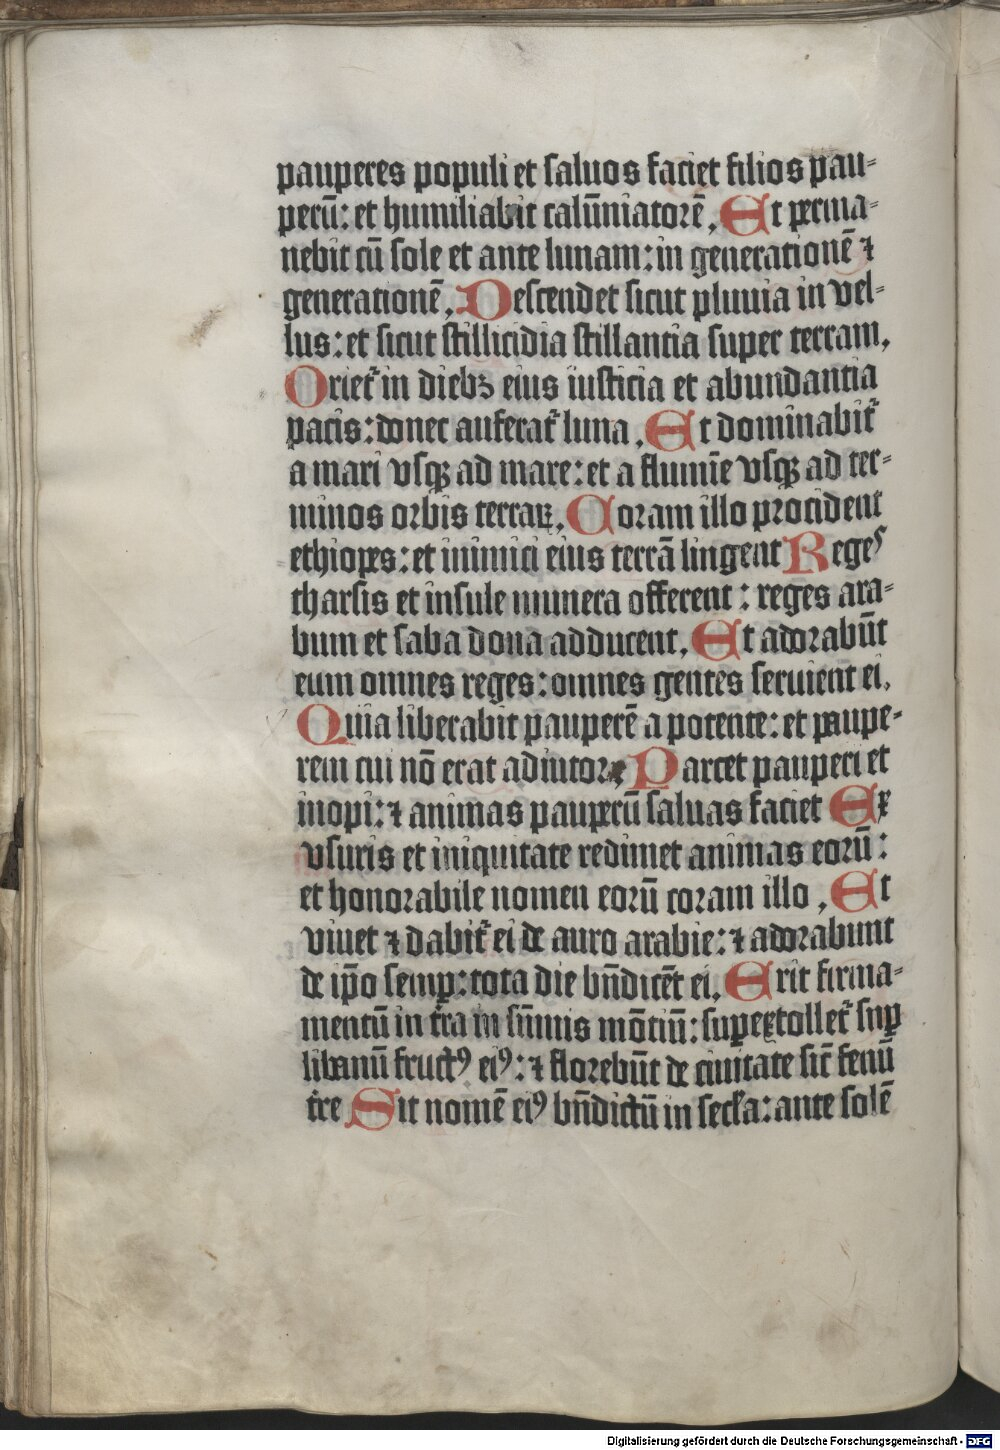 pauperes populi et saluos faciet filios pau-
perū: et humiliabit calūniatorē, Et perma-
nebit cū sole et ante lunam: in generationē ⁊
generationē, Descendet sicut pluuia in vel-
lus: et sicut stillicidia stillantia super terram,
Oriet᷑ in diebꝫ eius iusticia et abundantia
pacis: donec auferat᷑ luna, Et dominabit᷑
a mari vsqꝫ ad mare: et a flumīe vsqꝫ ad ter-
minos orbis terraꝝ, Coram illo procident
ethiopes: et inimici eius terrā lingent Reges
tharsis et insule munera offerent: reges ara-
bum et saba dona adducent, Et adorabūt
eum omnes reges: omnes gentes seruient ei,
Quia liberabit pauperē a potente: et paupe-
rem cui nō erat adiutor, Parcet pauperi et
inopi: ⁊ animas pauperū saluas faciet Ex
vsuris et iniquitate redimet animas eorū:
et honorabile nomen eorū coram illo, Et
viuet ⁊ dabit᷑ ei de auro arabie: ⁊ adorabunt
de ip̄o semꝑ: tota die bn̄dicēt ei, Erit firma-
mentū in t̄ra in sūmis mōtiū: suꝑextollet᷑ suꝑ
libanū fructꝰ eiꝰ: ⁊ florebūt de ciuitate sic̄ fenū
t̄re Sit nomē eiꝰ bn̄dictū in sec̄la: ante solē
Digitalisierung gefördert durch die Deutsche Forschungsgemeinschaft - DFG